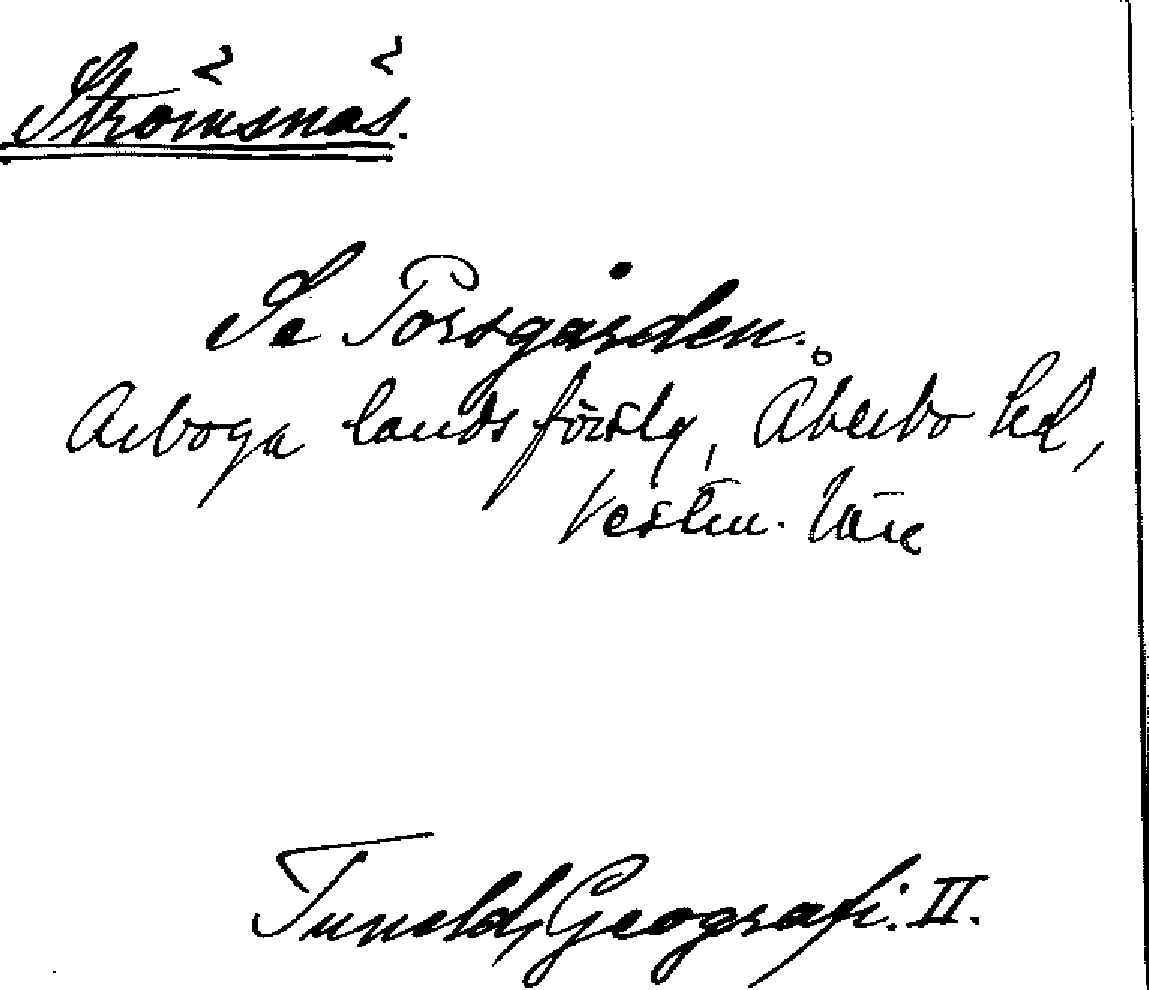 Strömsnäs.
Se Torsgården.
Arboga landsförslg, Åkerbo hd,
Vestm. län
Tuneld, Geografi. II.